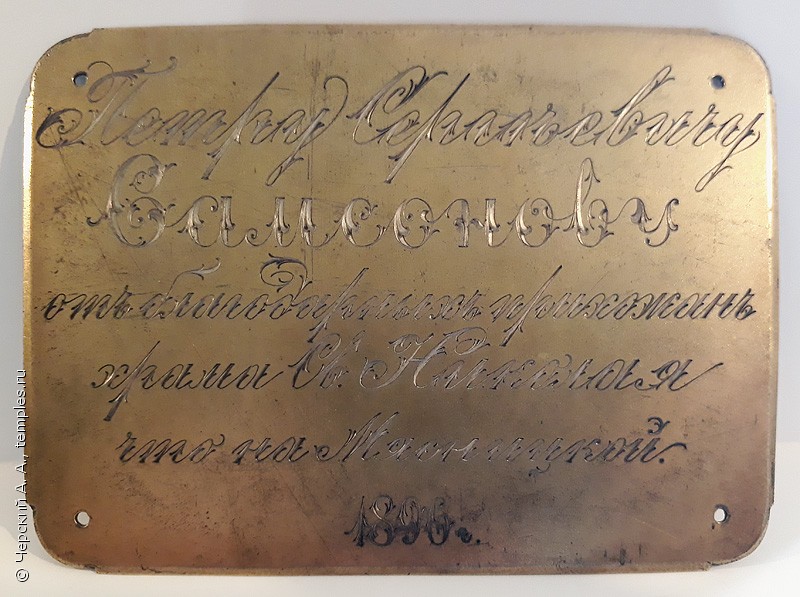 Петру Сергѣевичу
Самсонову
отъ благодарныхъ прихожанъ
храма Св. Николая
что на Мясницкой.
1896г.
© Черский А. А., temples.ru